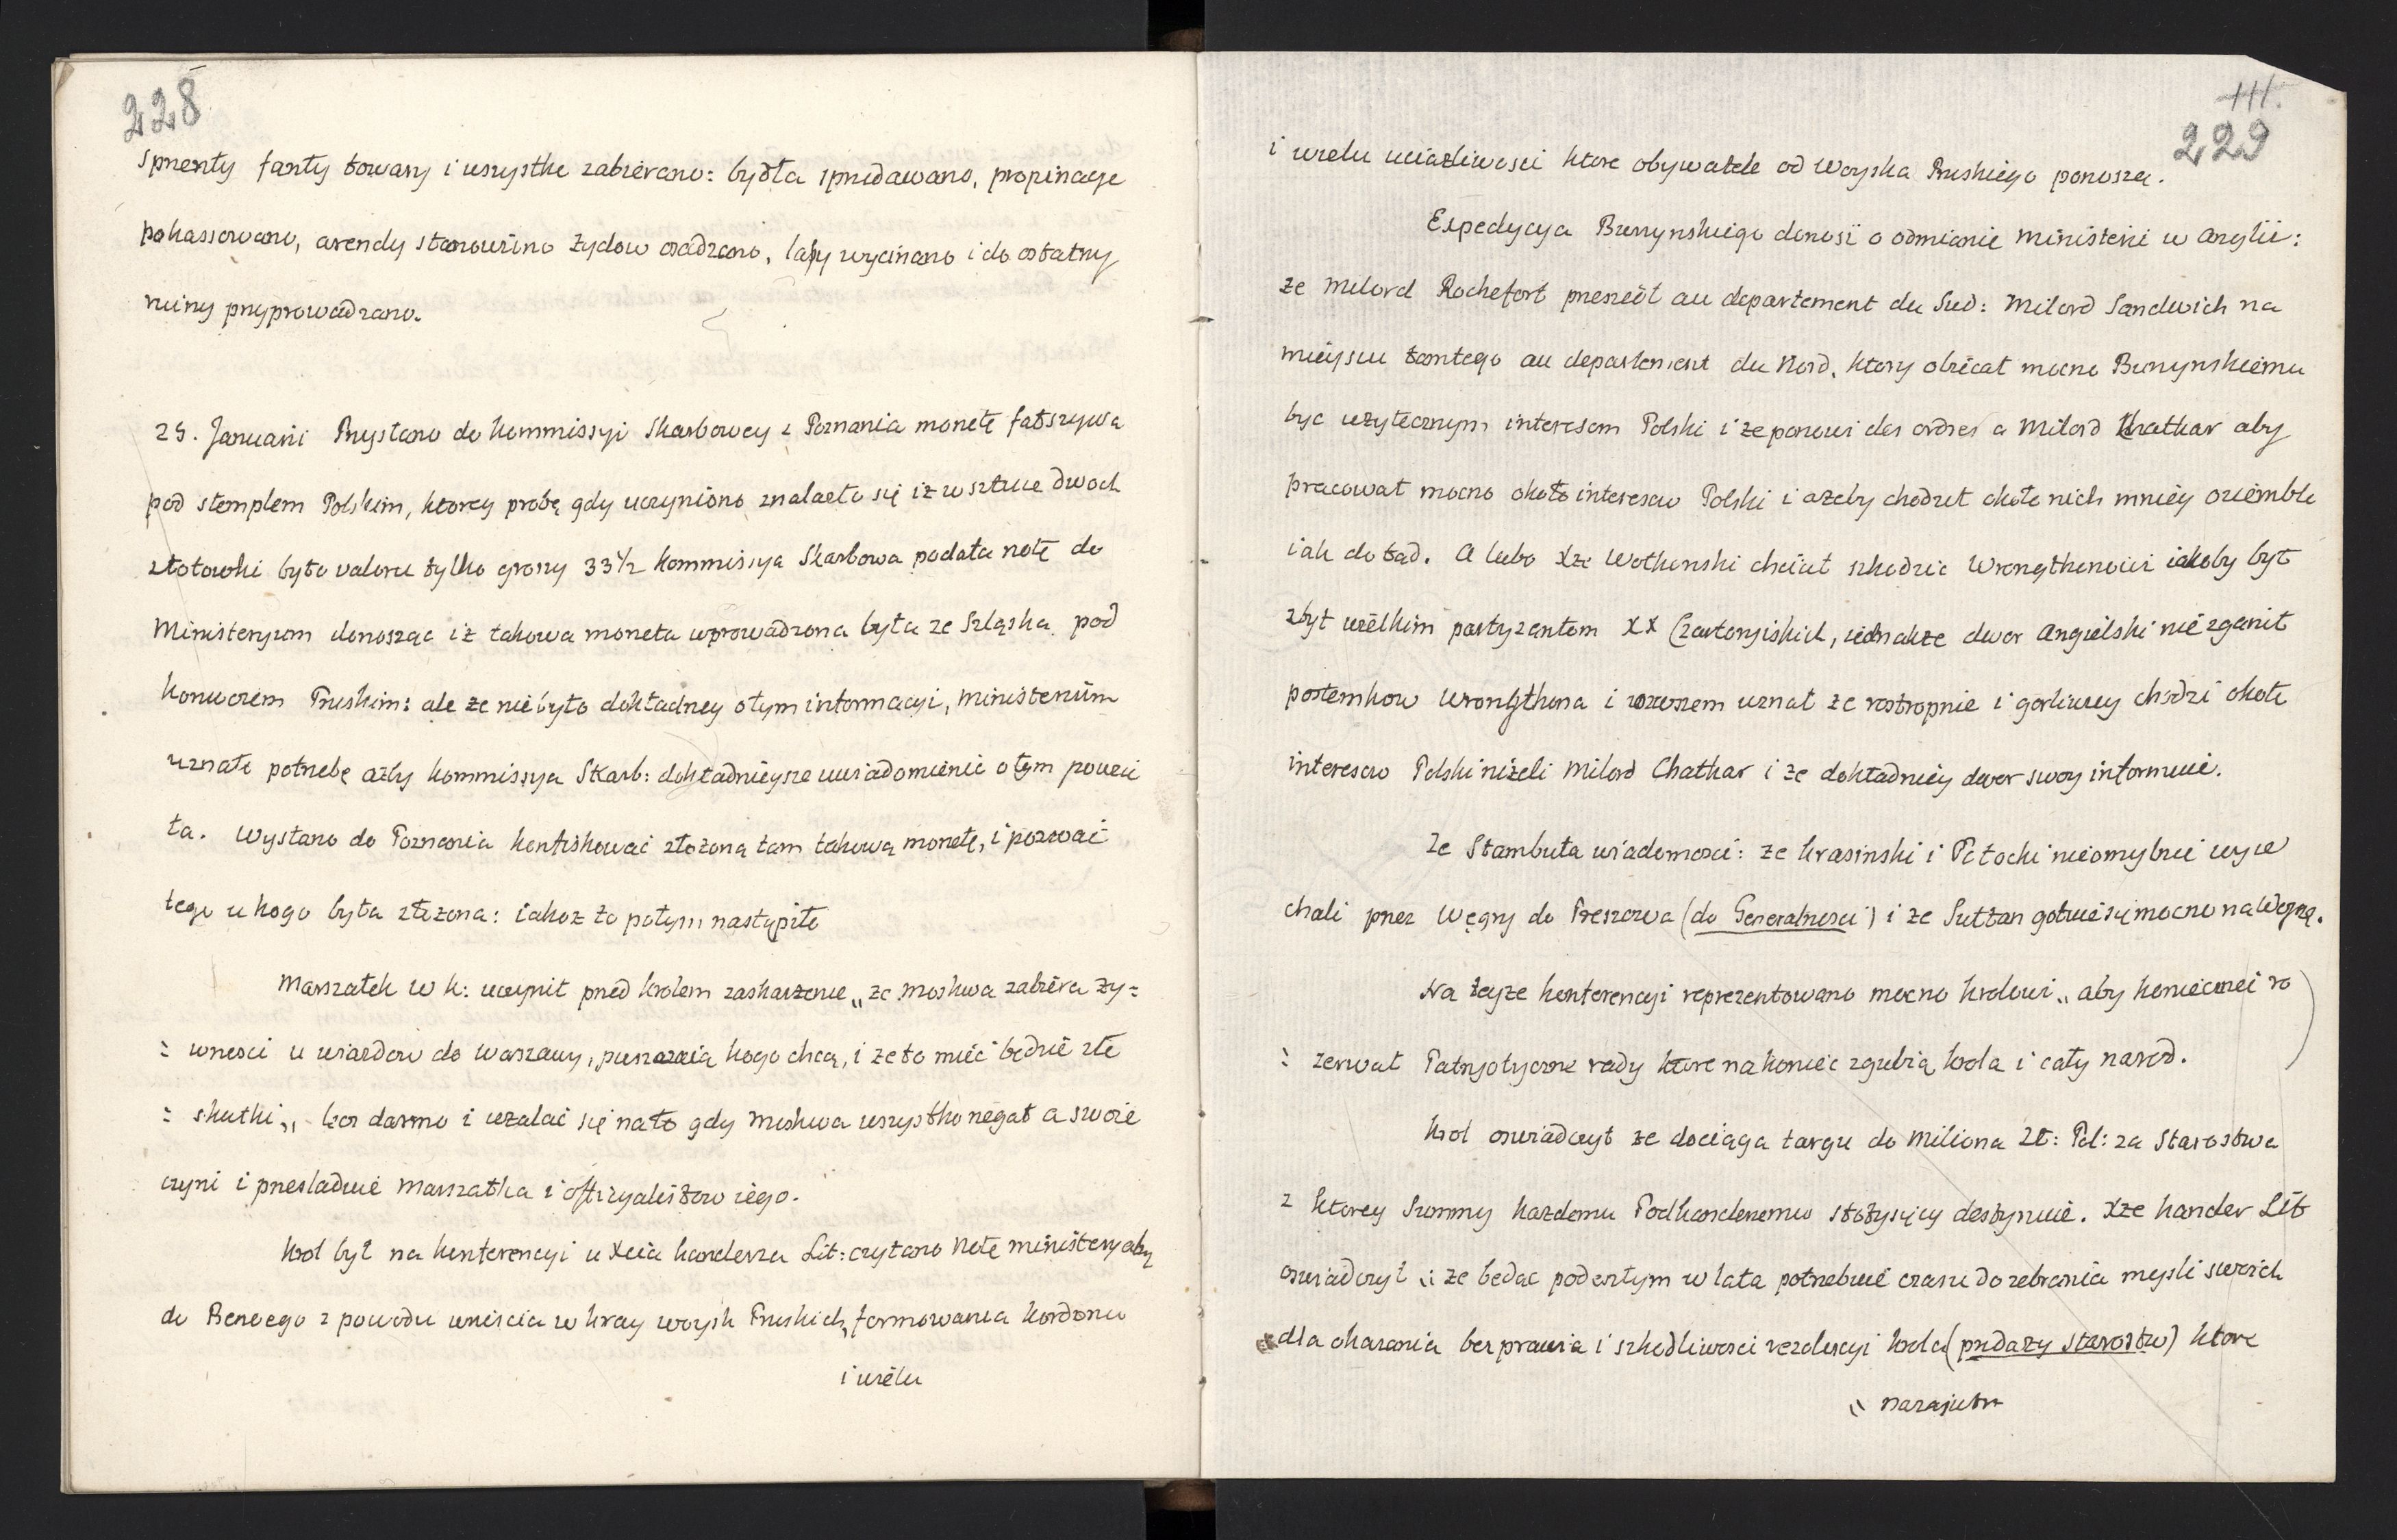 228
sprzęty fanty towary i wszystko zabierano: bydła sprzedawano, propinacye
pokassowano, arendy stanowiono żydow osadzano, lasy wycinano i do ostatny
ruiny przyprowadzano.
25. Januarii Przysłano do Kommissyi Skarbowey z Poznania monetę fałszywą
pod stemplem Polskim, ktorey probę gdy uczyniono znalazło się iż w sztuce dwoch
złotowki było valoru tylko groszy 33 1/2 Kommissya Skarbowa podała notę do
Ministeryum donosząc iż takowa moneta wprowadzona była ze Szląska pod
konwoiem Pruskim: ale że nie było dokładney o tym informacyi, ministerium
uznało potrzebę ażby Kommissya Skarb: dokładnieysze uwiadomienie o tym powzie
ła. Wysłano do Poznania konfiskować złożoną tam takową monetę, i pozwać
tego u kogo była złożona: iakoż to potym nastąpiło
Marszałek W K: uczynił przed Krolem zaskarżenie „ że Moskwa zabiera ży=
= wnosci u wiazdow do Warszawy, puszczaią kogo chcą, i że to mieć będzie złe
= skutki „ lecz darmo i użalać się na to gdy Moskwa wszystko negat a swoie
czyni i przesladuie Marszałka i officyalistow iego.
Krol był na konferencyi u Xcia Kanclerza Lit: czytano Notę ministery aby
do Benoego z powodu wniscia w kray woysk Pruskich, formowania kordonu
i wielu
111.
229
i wielu uciążliwosci ktore obywatele od Woyska Pruskiego ponoszą.
Expedycya Burzynskiego donosi o odmianie Ministerii w Anglii:
że Milord Rochefort przeszedł au departement du Sud: Milord Sandwich na
mieyscu tamtego au departement du Nord, ktory obiecał mocno Burzynskiemu
byc użytecznym interesom Polski i że ponowi des ordres a Milord Khathar aby
pracował mocno około interesow Polski i ażeby chodził około nich mniey oziemble
iak dotąd. A lubo Xże Wołkonski chciał szkodzić Wrongthonowi iakoby był
zbyt wielkim partyzantem XX Czartoryiskich, iednakże dwor Angielski nie zganił
postempkow Wrongthona i owszem uznał że rostropnie i gorliwey chodzi około
interesow Polski niżeli Milord Chathar i że dokładniey dwor swoy informuie.
Ze Stambułu wiadomosci: że Krasinski i Potocki nieomylnie wyie
chali przez Węgry do Preszowa (do Generalnosci) i że Sułtan gotuie się mocno na Woynę.
Na teyże konferencyi reprezentowano mocno Krolowi „ aby koniecznei ro
= zerwał Patryotyczne rady ktore na koniec zgubią Krola i cały narod.
Krol oswiadczył że dociąga targu do miliona Zł: Pol: za Starostwa
z ktorey Summy każdemu Podkomorzemu stotysięcy destynuie. Xże Kancler Lit
oswiadczył „ że będąc podeszłym w lata potrzebuie czasu do zebrania mysli swoich
dla okazania bezprawia i szkodliwosci rezolucyi Krola (przedazy Starostw) ktore
„ nazajutrz